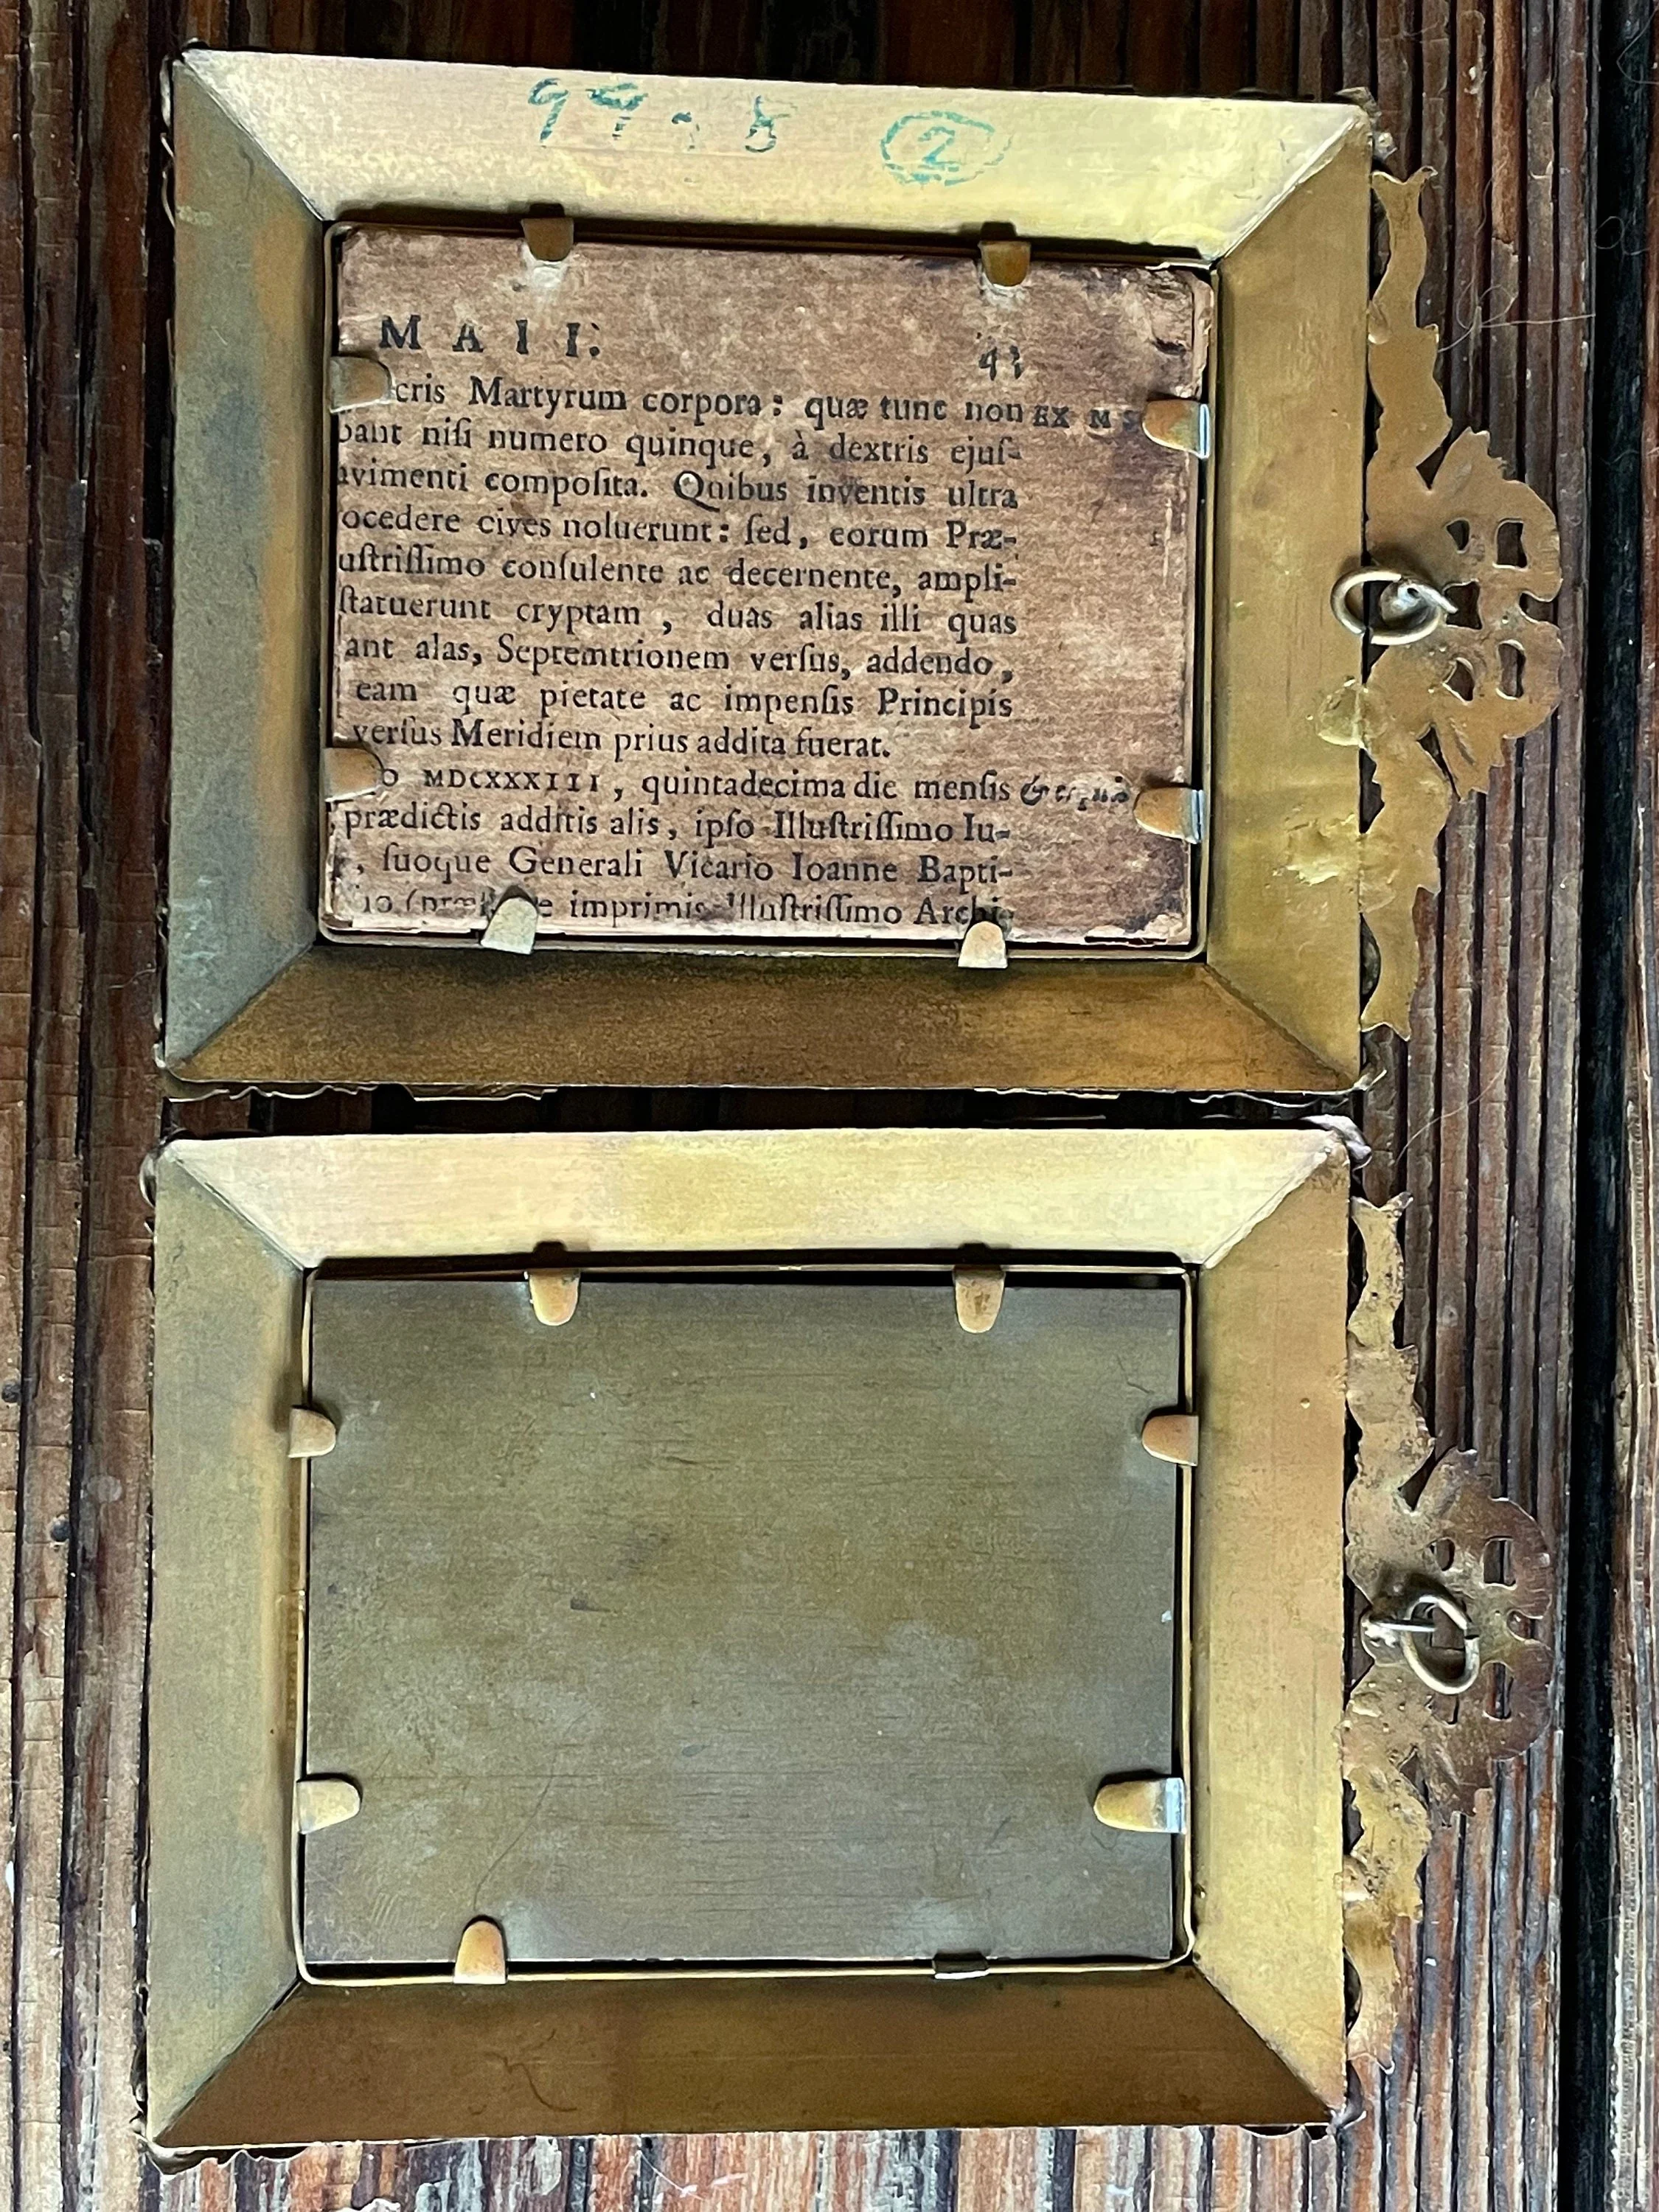 99.5 2
MAII. 43
cris Martyrum corpora: quæ tunc non EX MS
bant niſi numero quinque, à dextris ejuſ-
avimenti compoſita. Quibus inventis ultra
ocedere cives noluerunt: ſed, eorum Præ-
uſtriſſimo conſulente ac decernente, ampli-
ſtatuerunt cryptam, duas alias illi quas
ant alas, Septemtrionem verſus, addendo,
eam quæ pietate ac impenſis Principis
verſus Meridiem prius addita fuerat.
o MDCXXXIII, quintadecima die menſis
prædictis additis alis, ipſo Illuſtriſſimo Iu-
, ſuoque Generali Vicario Ioanne Bapti-
io imprimis Illuſtriſſimo Archi-